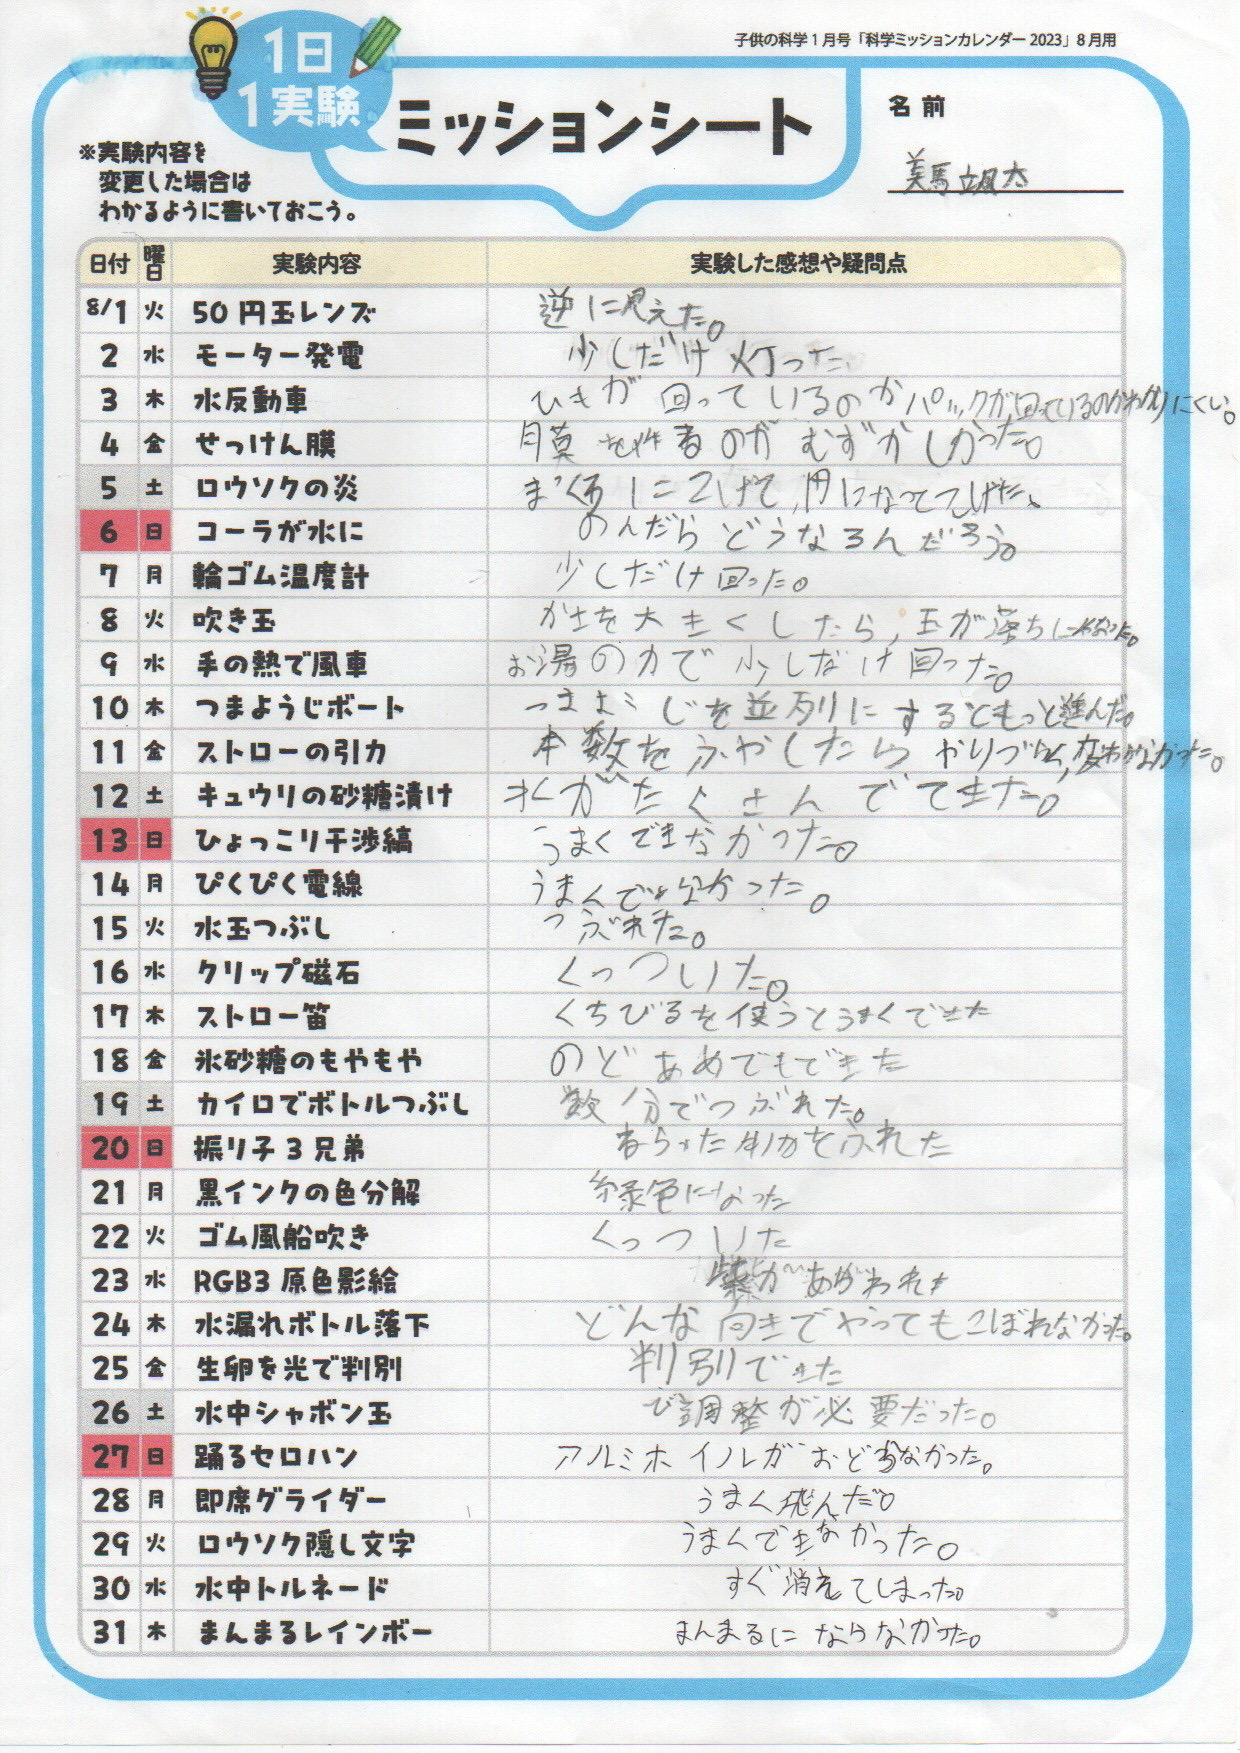 子供の科学1月号「科学ミッションカレンダー2023」8月用
1日
1実験
ミッションシート
名前
美馬颯太
※実験内容を
変更した場合は
わかるように書いておこう。
日付 曜日 実験内容 実験した感想や疑問点
8/1 火 50円玉レンズ 逆に見えた。
2 水 モーター発電 少しだけ灯った
3 木 水反動車 ひもが回っているのかパックが回っているのかわかりにくい。
4 金 せっけん膜 膜を作るのがむずかしかった。
5 土 ロウソクの炎 まっ黒にこげて、円になってこげた。
6 日 コーラが水に のんだらどうなるんだろう。
7 月 輪ゴム温度計 少しだけ回った。
8 火 吹き玉 を大きくしたら,玉が落ちにくくなった。
9 水 手の熱で風車 お湯の力で少しだけ回った。
10 木 つまようじボート つまようじを並列にするともっと進んだ。
11 金 ストローの引力 本数をふやしたらやりづらく,変わらなかった。
12 土 キュウリの砂糖漬け 水がたくさんでてきた。
13 日 ひょっこり干渉縞 うまくできなかった。
14 月 ぴくぴく電線 うまくできなかった。
15 火 水玉つぶし つぶれた。
16 水 クリップ磁石 くっついた。
17 木 ストロー笛 くちびるを使うとうまくできた
18 金 氷砂糖のもやもや のどあめでもできた
19 土 カイロでボトルつぶし 数分でつぶれた。
20 日 振り子3兄弟 ねらった をふれた
21 月 黒インクの色分解 緑色になった
22 火 ゴム風船吹き くっついた
23 水 RGB3原色影絵 紫があらわれた
24 木 水漏れボトル落下 どんな向きでやってもこぼれなかった。
25 金 生卵を光で判別 判別できた
26 土 水中シャボン玉 び調整が必要だった。
27 日 踊るセロハン アルミホイルがおどらなかった。
28 月 即席グライダー うまく飛んだ。
29 火 ロウソク隠し文字 うまくできなかった。
30 水 水中トルネード すぐ消えてしまった。
31 木 まんまるレインボー まんまるにならなかった。